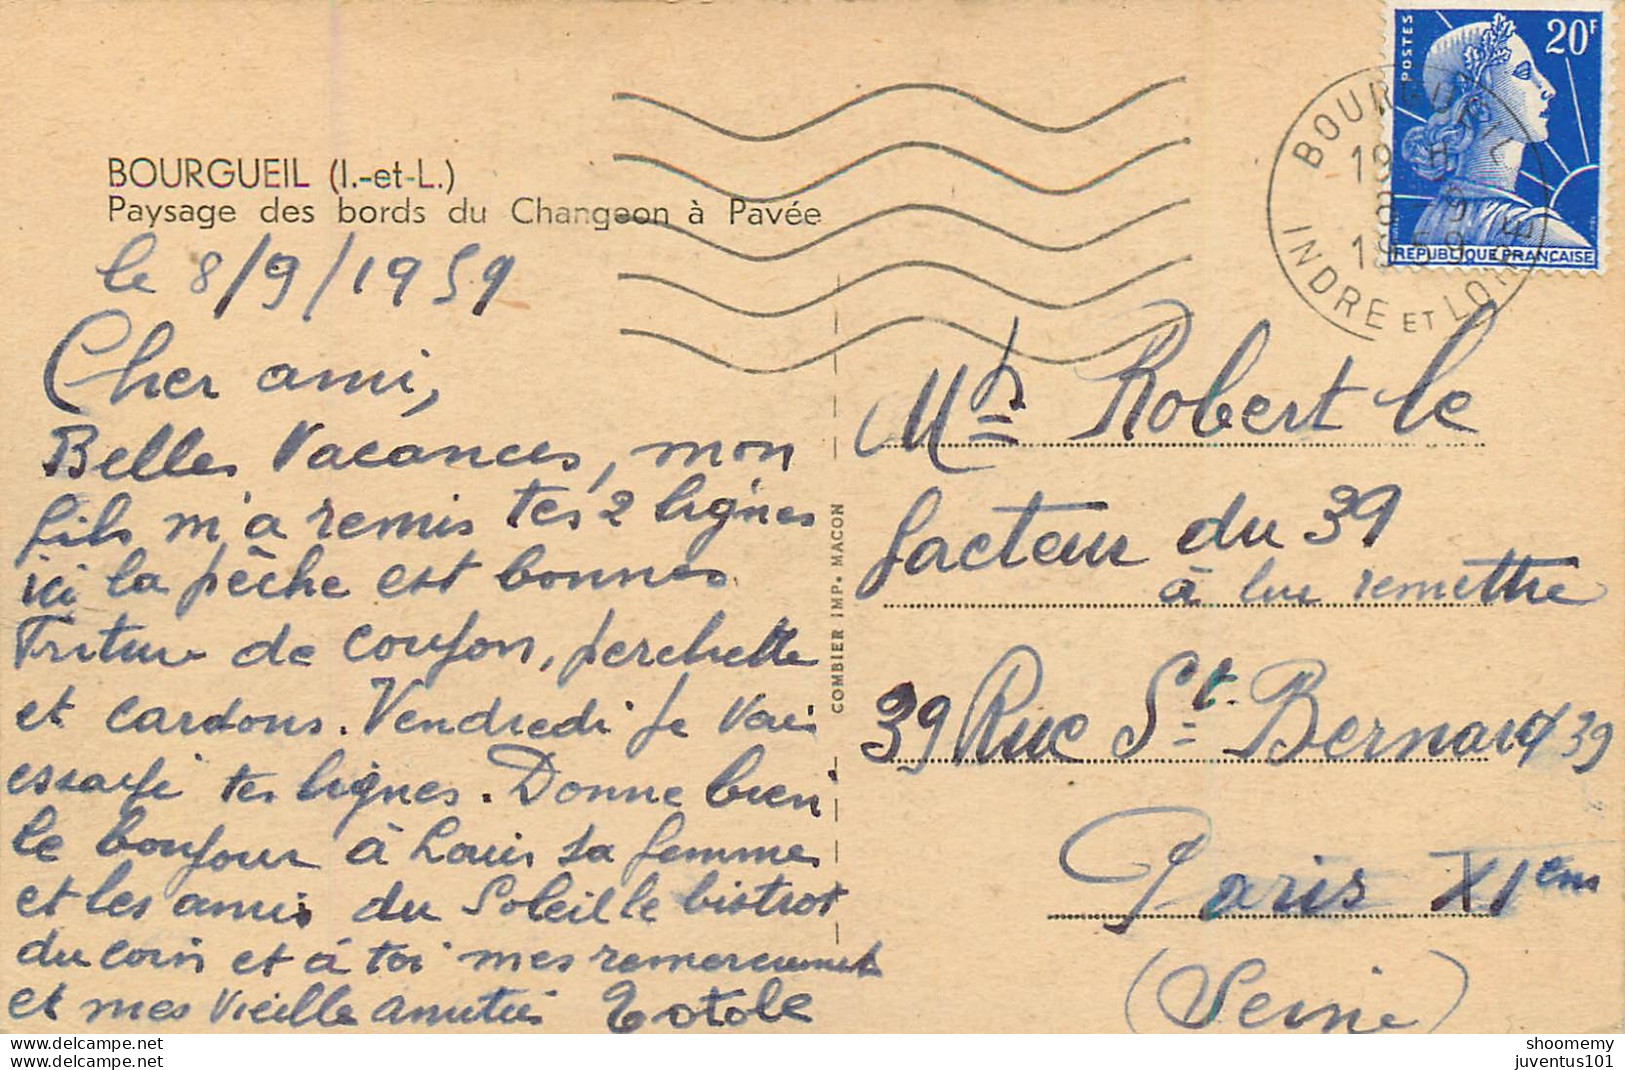 BOURGUEIL (I.-et-L.)
Paysage des bords du Changeon à Pavée
le 8/9/1959
Cher ami,
Belles Vacances, mon
fils m'a remis tes 2 lignes
ici la pêche est bonnes
Friture de goujon, perchette
et cardons. Vendredi je vais
essayé tes lignes. Donne bien
le bonjour à Louis sa femme
et les amis du Soleil le bistrot
du coin et à toi mes remerciements
et mes vieille amitiés Totole
COMBIER IMP. MACON
POSTES
20F
REPUBLIQUE FRANÇAISE
BOURGUEIL
19 H
8 9
1959
INDRE ET LOIRE
Mr Robert le
facteur du 39
à lui remettre
39 Rue St. Bernard 39
Paris XIem
(Seine)
delcampe.net
shoomemy
juventus101